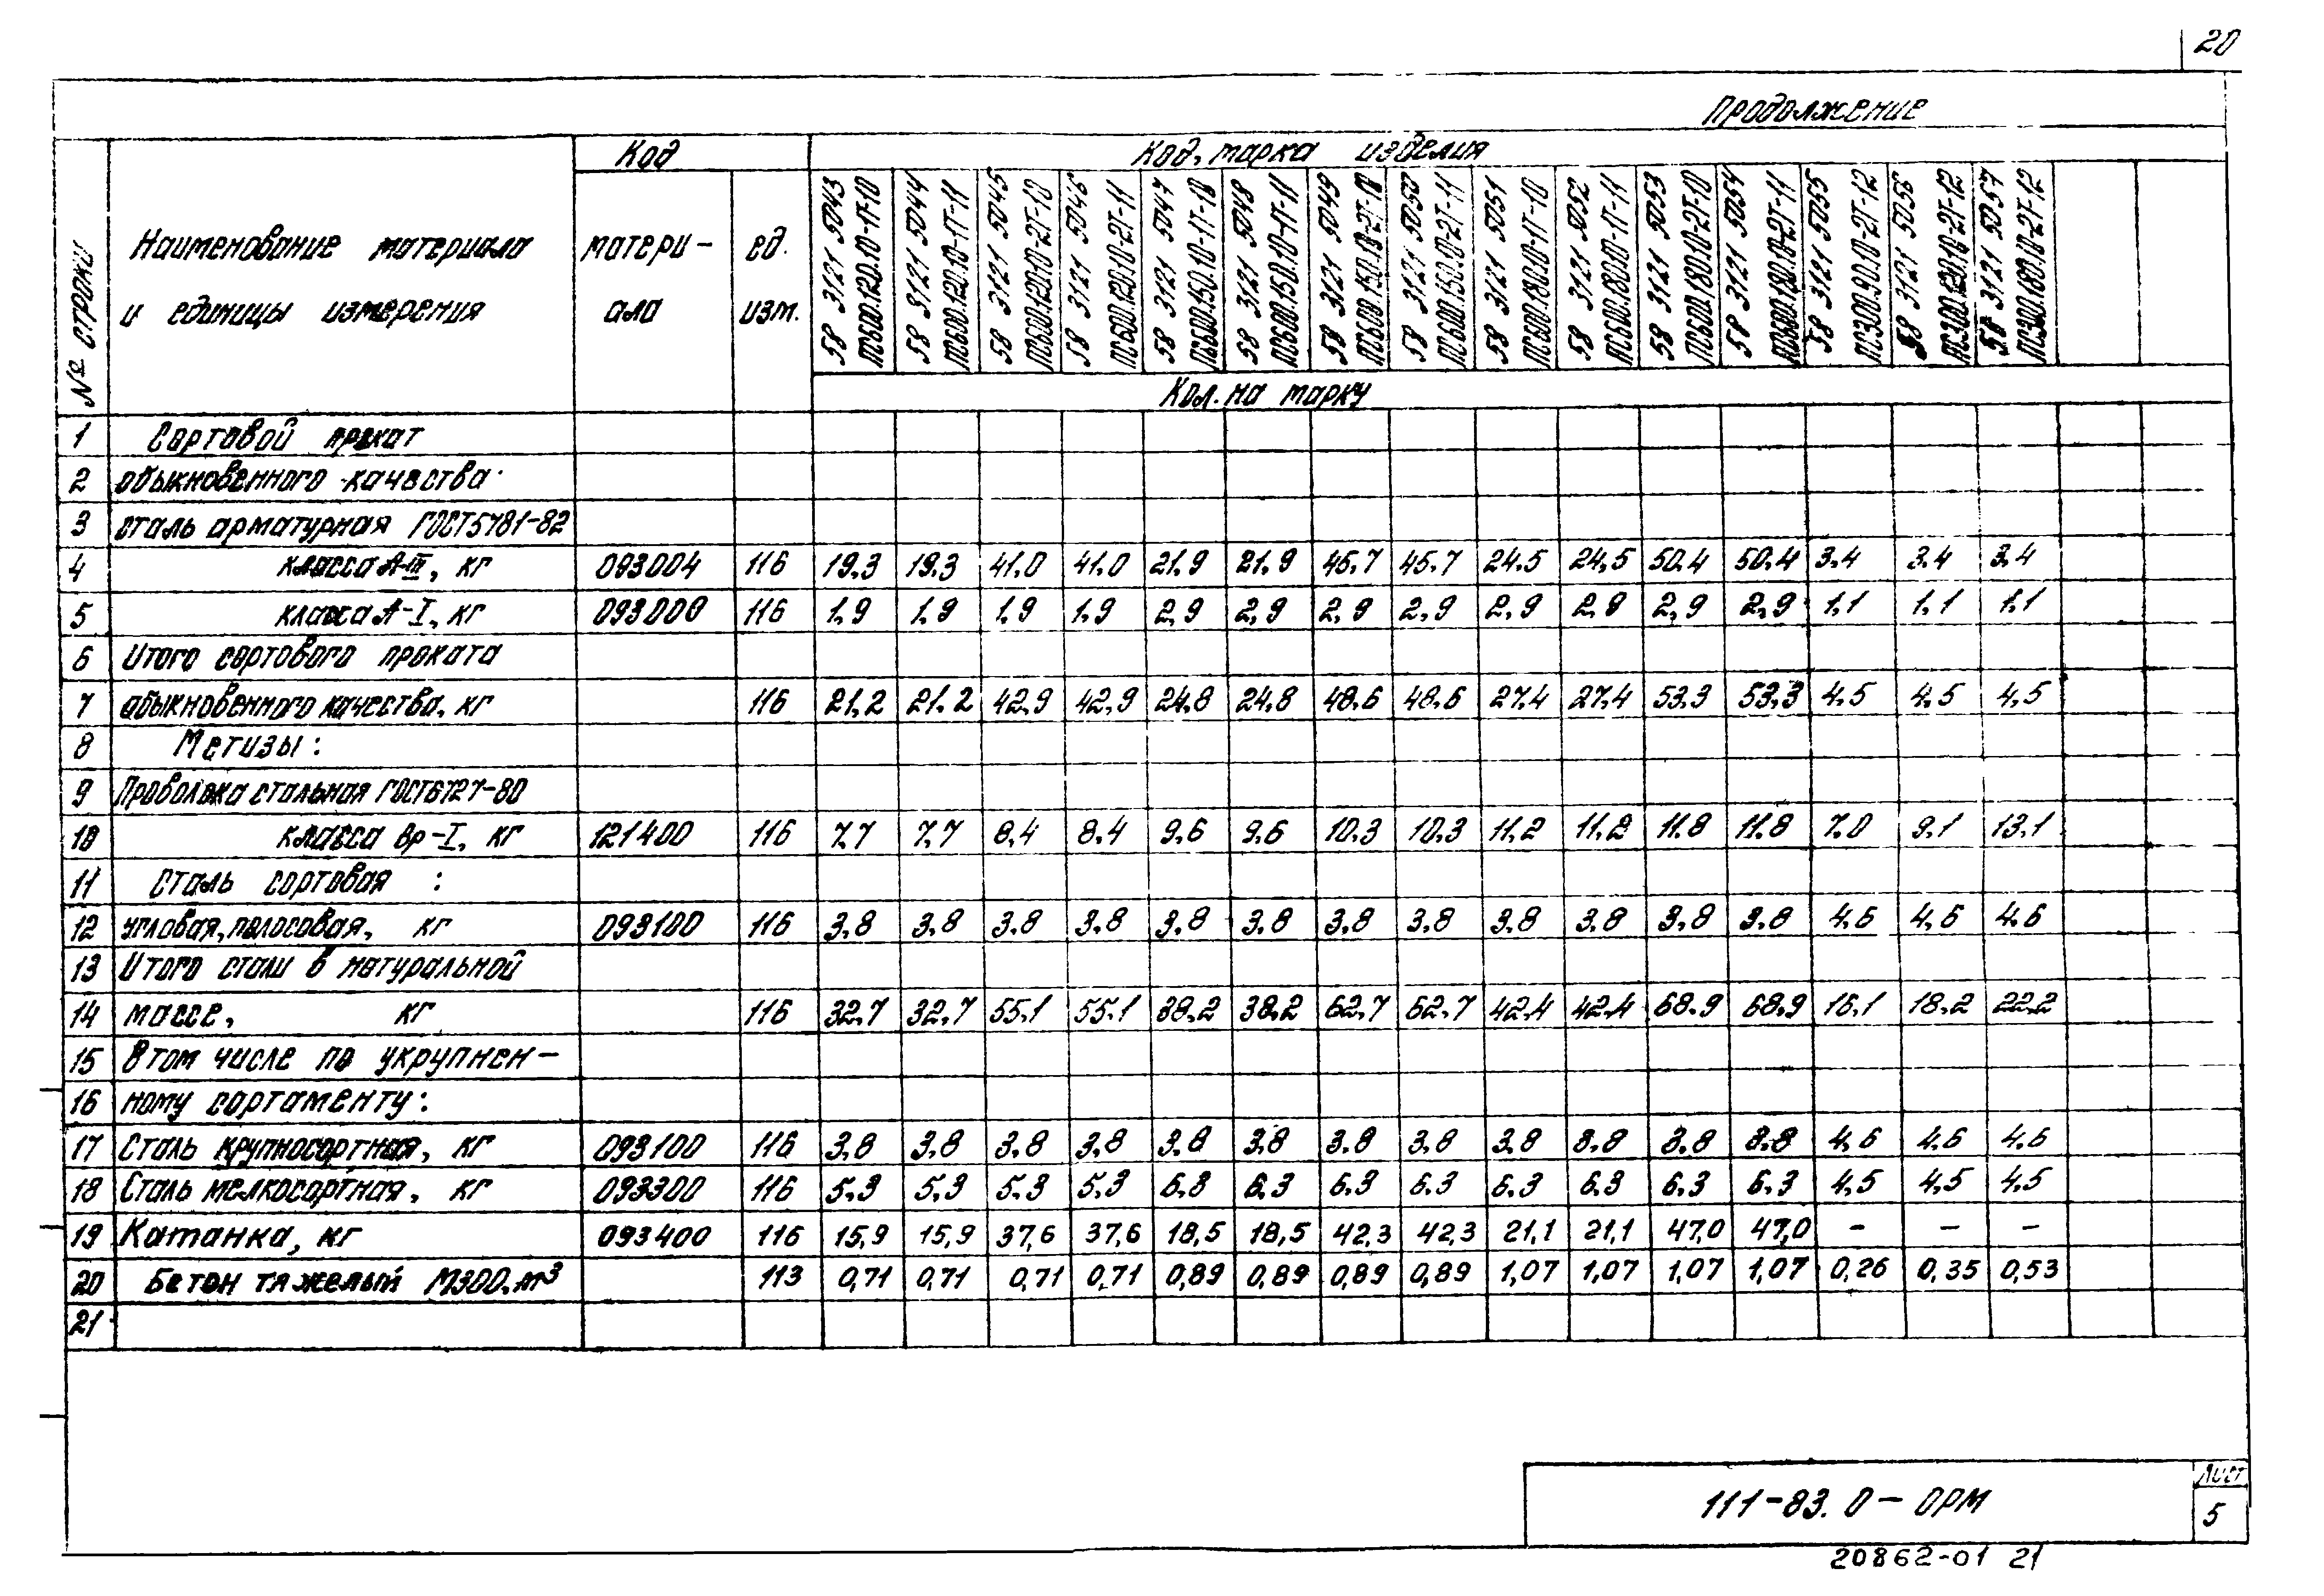 20
Продолжение
№ строки
Наименование материала
и единицы измерения
Код
матери-
ала
ед.
изм.
Код, марка изделия
58 3121 5043
ПС600.120.10-1Т-10
58 3121 5044
ПС600.120.10-1Т-11
58 3121 5045
ПС600.120.10-2Т-10
58 3121 5046
ПС600.120.10-2Т-11
58 3121 5047
ПС600.150.10-1Т-10
58 3121 5048
ПС600.150.10-1Т-11
58 3121 5049
ПС600.150.10-2Т-10
58 3121 5050
ПС600.150.10-2Т-11
58 3121 5051
ПС600.180.10-1Т-10
58 3121 5052
ПС600.180.10-1Т-11
58 3121 5053
ПС600.180.10-2Т-10
58 3121 5054
ПС600.180.10-2Т-11
58 3121 5055
ПС300.90.10-2Т-12
58 3121 5056
ПС300.120.10-2Т-12
58 3121 5057
ПС300.180.10-2Т-12
Кол. на марку
1 Сортовой прокат
2 обыкновенного качества
3 сталь арматурная ГОСТ5781-82
4 класса А-III, кг 093004 116 19.3 19.3 41.0 41.0 21.9 21.9 45.7 45.7 24.5 24,5 50.4 50.4 3.4 3.4 3.4
5 класса А-I, кг 093000 116 1.9 1.9 1.9 1.9 2,9 2,9 2.9 2,9 2,9 2.9 2,9 2,9 1,1 1,1 1,1
6 Итого сортового проката
7 обыкновенного качества, кг 116 21,2 21.2 42,9 42,9 24,8 24,8 48,6 48,6 27,4 27,4 53,3 53,3 4,5 4,5 4,5
8 Метизы:
9 Проволока стальная ГОСТ6727-80
10 класса Вр-I, кг 121400 116 7,7 7,7 8,4 8,4 9,6 9,6 10,3 10,3 11,2 11,2 11,8 11,8 7,0 9,1 13,1
11 Сталь сортовая :
12 угловая, полосовая, кг 093100 116 3,8 3,8 3,8 3,8 3,8 3,8 3,8 3,8 3,8 3,8 3,8 3,8 4,6 4,6 4,6
13 Итого стали в натуральной
14 массе, кг 116 32,7 32,7 55,1 55,1 38,2 38,2 62,7 62,7 42,4 42,4 68,9 68,9 16,1 18,2 22,2
15 В том числе по укрупнен-
16 ному сортаменту:
17 Сталь крупносортная, кг 093100 116 3,8 3,8 3,8 3,8 3,8 3,8 3,8 3,8 3,8 3,8 3,8 3,8 4,6 4,6 4,6
18 Сталь мелкосортная, кг 093300 116 5,3 5,3 5,3 5,3 6,3 6,3 6,3 6,3 6,3 6,3 6,3 6,3 4,5 4,5 4,5
19 Катанка, кг 093400 116 15,9 15,9 37,6 37,6 18,5 18,5 42,3 42,3 21,1 21,1 47,0 47,0 – – –
20 Бетон тяжелый М300, м³ 113 0,71 0,71 0,71 0,71 0,89 0,89 0,89 0,89 1,07 1,07 1,07 1,07 0,26 0,35 0,53
21
111-83. 0- ОРМ
Лист
5
20862-01 21